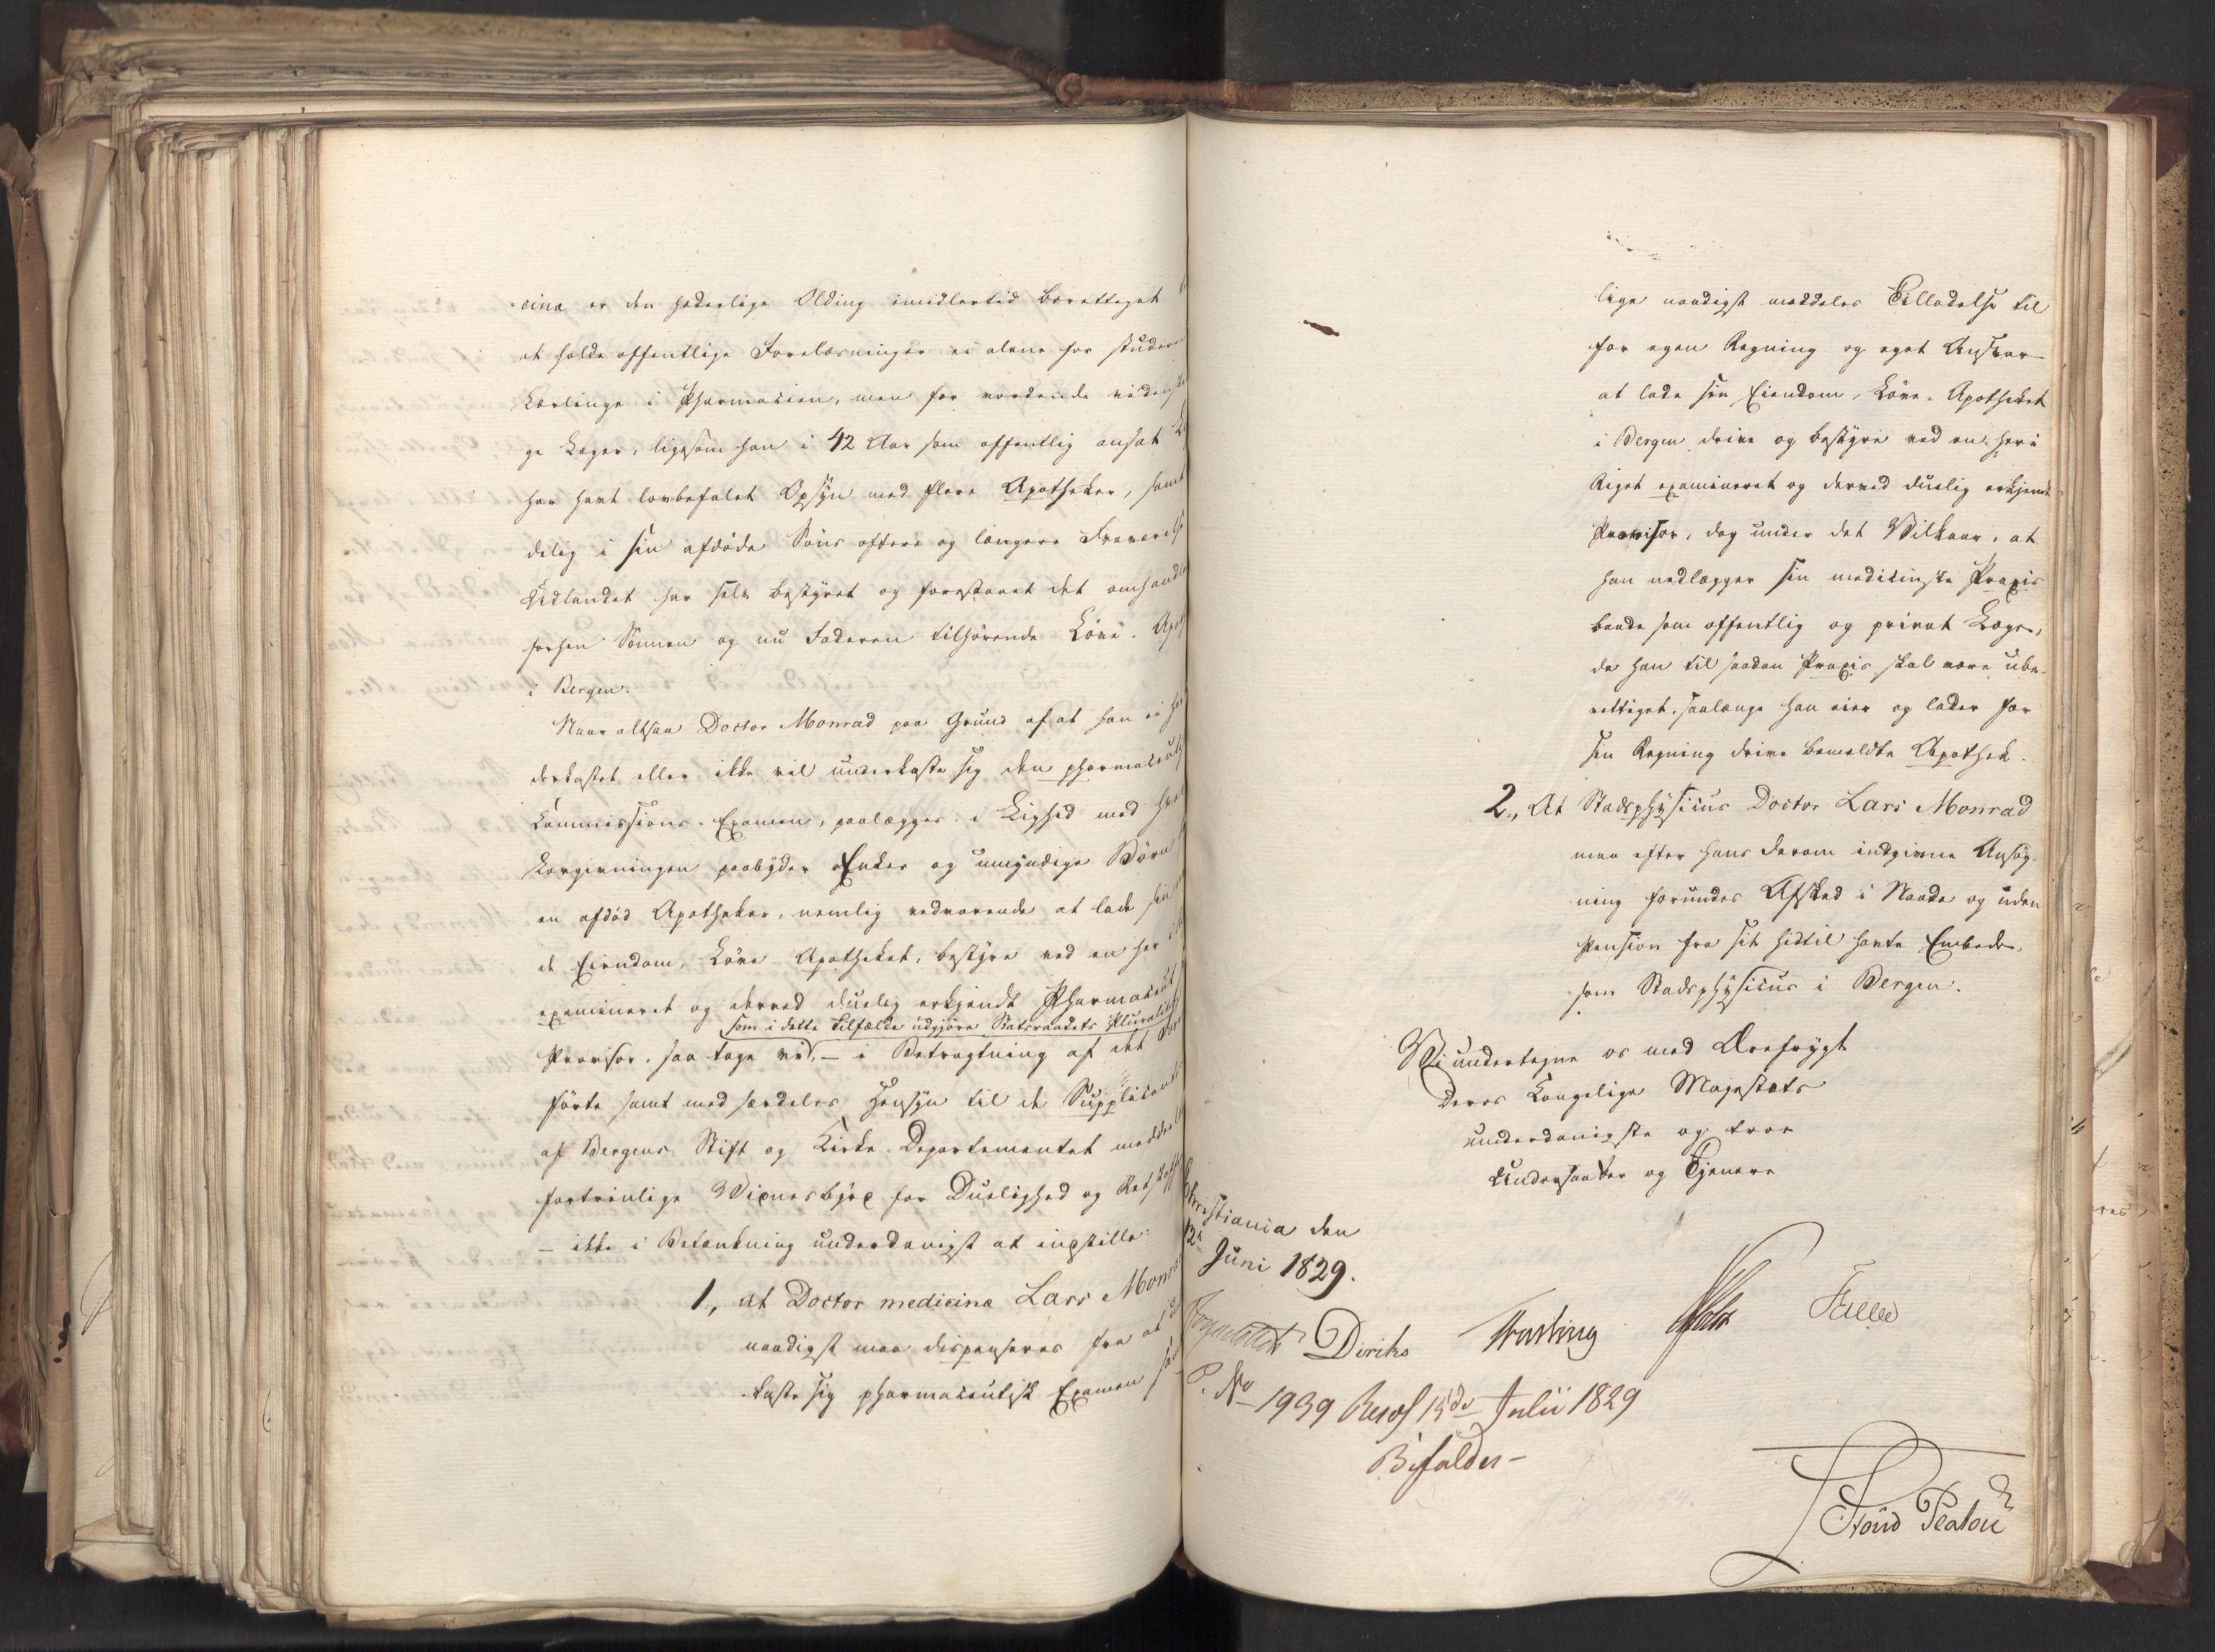 cina er den hæderlige Olding imidlertid berettiget
at holde offentlige Forelæsninger ei alene for studer
Lærlinge i Pharmacien, men for vordende vidensk
ge Læger, ligesom han i 42 Aar som offentlig ansat
har havt lovbefalet Opsyn med flere Apotheker, samt
delig i sin afdøde Søns oftere og længere Fraværelse
Udlandet har selv bestyret og forestaaet det omhandl
forhen Sønnen og nu Faderen tilhørende Løve-Apo
i Bergen.
Naar altsaa Doctor Monrad paa Grund af at han ei h
derkastet eller ikke vil underkaste sig den pharmaceut
Commissions-Examen, paalægges i Liighed med hva
Lovgivningen paabyder Enker og umyndige Børn
en afdød Apotheker, nemlig vedvarende at lade sin
de Eiendom, Løve-Apotheket, bestyre ved en her
examineret og derved duelig erkjendt Pharmaceut
som i dette Tilfælde udgjøre Statsraadets Pluralitet
Provisor, saa tage vi, – i Betragtning af det
førte samt med særdeles Hensyn til de Supplicant
af Bergens Stift og Kirke-Departementet meddeel
fortrinlige Vidnesbyrd for Duelighed og Retska
– ikke i Betænkning underdanigst at indstille:
1, at Doctor medicinæ Lars Monra
naadigst maa dispenseres fra at
kaste sig pharmaceutisk Examen
lige naadigst meddeles Tilladelse til
for egen Regning og eget Ansvar
at lade sin Eiendom, Løve-Apotheket
i Bergen drive og bestyre ved en her i
Riget examineret og derved duelig erkjendt
Provisor, dog under det Vilkaar, at
han nedlægger sin medicinske Praxis
baade som offentlig og privat Læge,
da han til saadan Praxis skal være ube-
rettiget, saalænge han eier og lader for
sin Regning drive bemeldte Apothek.
2, At Stadsphysicus Doctor Lars Monrad
maa efter hans derom indgivne Ansøg-
ning forundes Afsked i Naade og uden
Pension fra sit hidtil havte Embede
som Stadsphysicus i Bergen.
Vi undertegne os med Ærefrygt
Deres Kongelige Majestæts
underdanigste og troe
Undersaatter og Tjenere
Christiania den
12te Juni 1829.
Diriks Treschow Holst Fasting
P. No 1939 Resol 15de Julii 1829
Bifaldes –
Platou